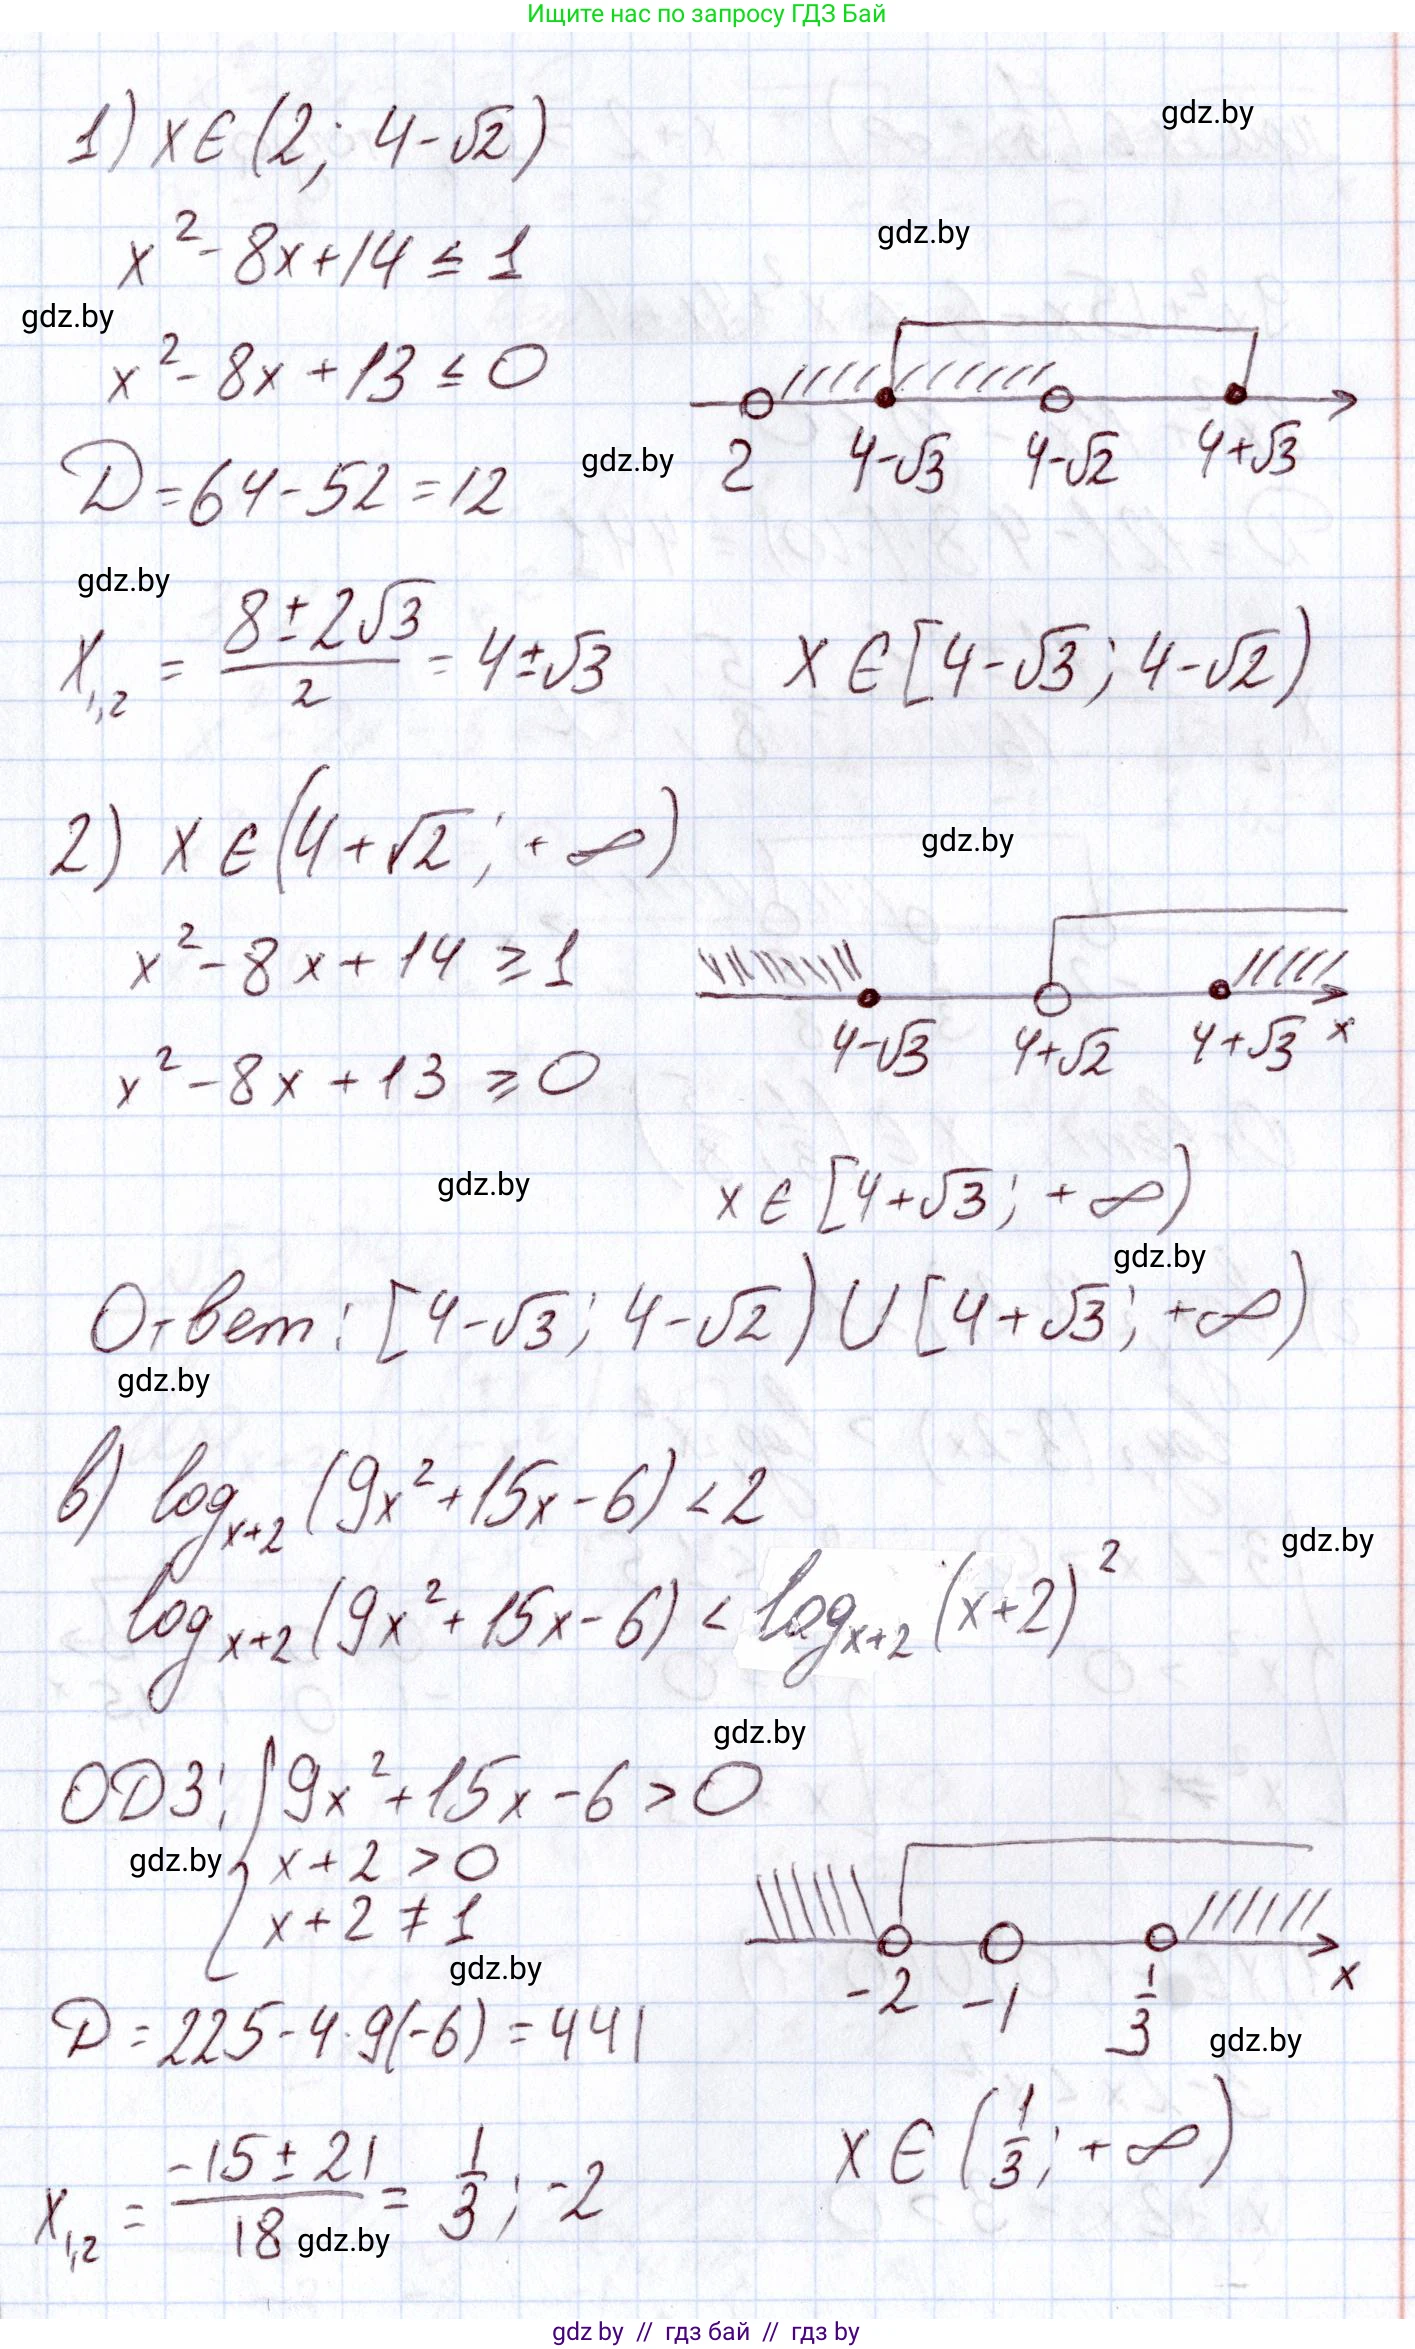 Ищите нас по запросу ГДЗ Бай
1) x∈(2; 4-√2)
gdz.by
x²-8x+14 ≤ 1
gdz.by
gdz.by
x²-8x+13 ≤ 0
2 4-√3 4-√2 4+√3
D=64-52=12
gdz.by
gdz.by
x₁,₂ = (8±2√3)/2 = 4±√3
x∈[4-√3; 4-√2)
2) x∈(4+√2; +∞)
gdz.by
x²-8x+14 ≥ 1
4-√3 4+√2 4+√3 x
x²-8x+13 ≥ 0
gdz.by
x∈[4+√3; +∞)
gdz.by
Ответ: [4-√3; 4-√2) U [4+√3; +∞)
gdz.by
в) log_{x+2}(9x²+15x-6) < 2
gdz.by
log_{x+2}(9x²+15x-6) < log_{x+2}(x+2)²
gdz.by
ОДЗ: { 9x²+15x-6 > 0
gdz.by
x+2 > 0
x+2 ≠ 1
gdz.by
-2 -1 1/3 x
D=225-4·9(-6)=441
gdz.by
x₁,₂ = (-15±21)/18 = 1/3; -2
x∈(1/3; +∞)
gdz.by
gdz by // гдз бай // гдз by